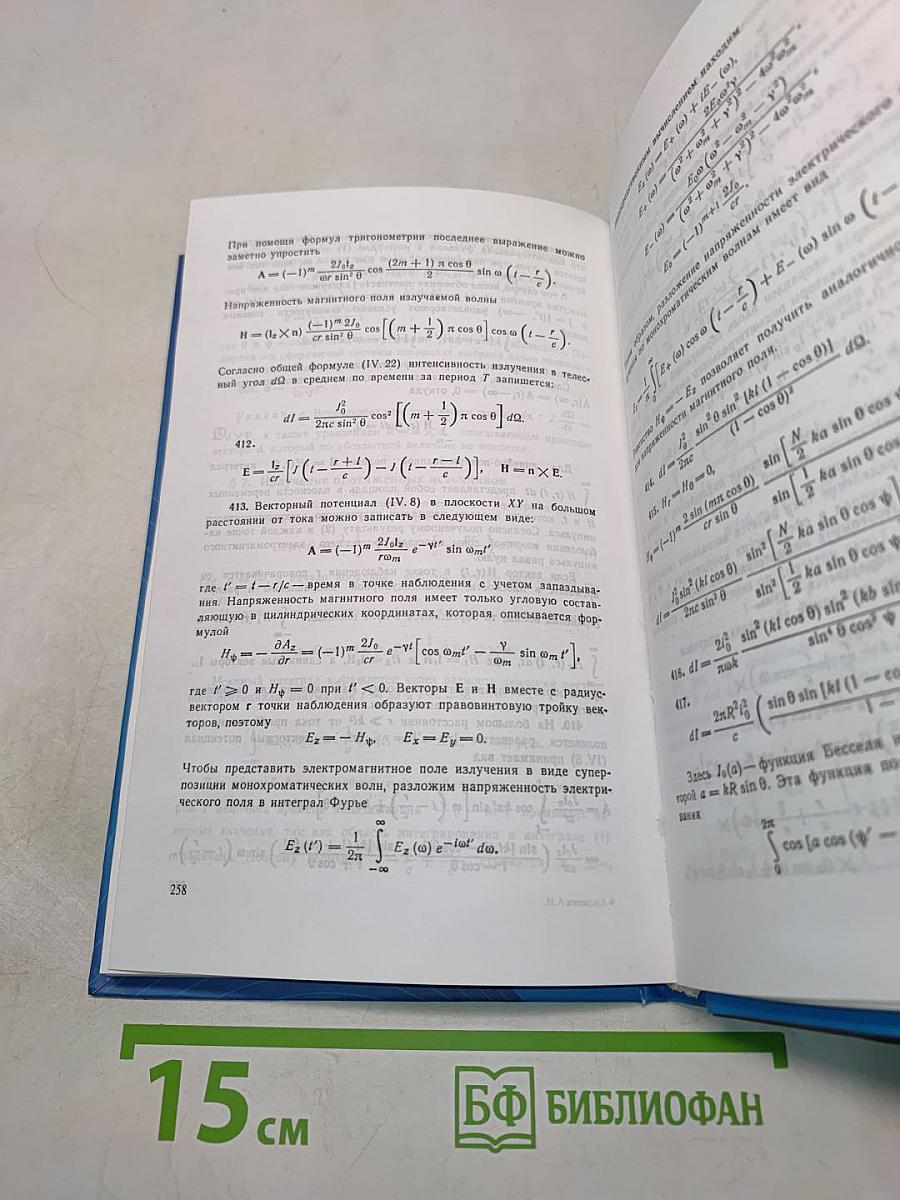 При помощи формул тригонометрии последнее выражение можно
заметно упростить
A = (−1)^m 2J₀l_z / (ωr sin² θ) cos (2m + 1) π cos θ / 2 sin ω (t − r/c).
Напряженность магнитного поля излучаемой волны
H = (l_z × n) (−1)^m 2J₀ / (cr sin² θ) cos [(m + 1/2) π cos θ] cos ω (t − r/c).
Согласно общей формуле (IV. 22) интенсивность излучения в телес-
ный угол dΩ в среднем по времени за период T запишется:
dI = J₀² / (2πc sin² θ) cos² [(m + 1/2) π cos θ] dΩ.
412.
E = l_z/cr [J (t − (r + l)/c) − J (t − (r − l)/c)], H = n × E.
413. Векторный потенциал (IV. 8) в плоскости XY на большом
расстоянии от тока можно записать в следующем виде:
A = (−1)^m 2J₀l_z / (rω_m) e^{−γt′} sin ω_m t′,
где t′ = t − r/c — время в точке наблюдения с учетом запаздыва-
ния. Напряженность магнитного поля имеет только угловую состав-
ляющую в цилиндрических координатах, которая описывается фор-
мулой
H_ψ = − ∂A_z/∂r = (−1)^m 2J₀/cr e^{−γt} [cos ω_m t′ − γ/ω_m sin ω_m t′],
где t′ ⩾ 0 и H_ψ = 0 при t′ < 0. Векторы E и H вместе с радиус-
вектором r точки наблюдения образуют правовинтовую тройку век-
торов, поэтому
E_z = − H_ψ, E_x = E_y = 0.
Чтобы представить электромагнитное поле излучения в виде супер-
позиции монохроматических волн, разложим напряженность электри-
ческого поля в интеграл Фурье
E_z (t′) = 1/2π ∫_{−∞}^{∞} E_z (ω) e^{−iωt′} dω.
258
вычислением находим
E_z (ω) = E₊ (ω) + iE₋ (ω),
E₊ (ω) = 2E₀ω²γ / ((ω² + ω_m² + γ²)² − 4ω²ω_m²),
E₋ (ω) = E₀ω (ω² − ω_m² − γ²) / ((ω² + ω_m² + γ²)² − 4ω²ω_m²),
E₀ = (−1)^{m+1} 2J₀/cr.
образом, разложение напряженности электрического
по монохроматическим волнам имеет вид
∫ [E₊ (ω) cos ω (t − r/c) + E₋ (ω) sin ω (t −
H_ψ = − E_z позволяет получить аналогичное
напряженности магнитного поля.
414. dI = J₀²/2πc sin² θ sin² [kl (1 − cos θ)] / (1 − cos θ)² dΩ.
415. H_r = H_θ = 0,
(−1)^m 2 sin (mπ cos θ) / (cr sin θ) sin [N/2 ka sin θ cos ψ / sin [1/2 ka sin θ cos
dI = sin² (kl cos θ) / (2πc sin² θ) sin² [N/2 ka sin θ cos ψ / sin² [1/2 ka sin θ cos ψ
416. dI = 2I₀²/πωk sin² (kl cos θ) sin² (kb sin / sin⁴ θ cos² ψ
417.
dI = 2πR²I₀²/c (sin θ sin [kl (1 − co / (1 − cos
Здесь J₀(a) — функция Бесселя
торой a = kR sin θ. Эта функция
вания
∫₀^{2π} cos [a cos (ψ′ −
15 см
БФ БИБЛИОФАН